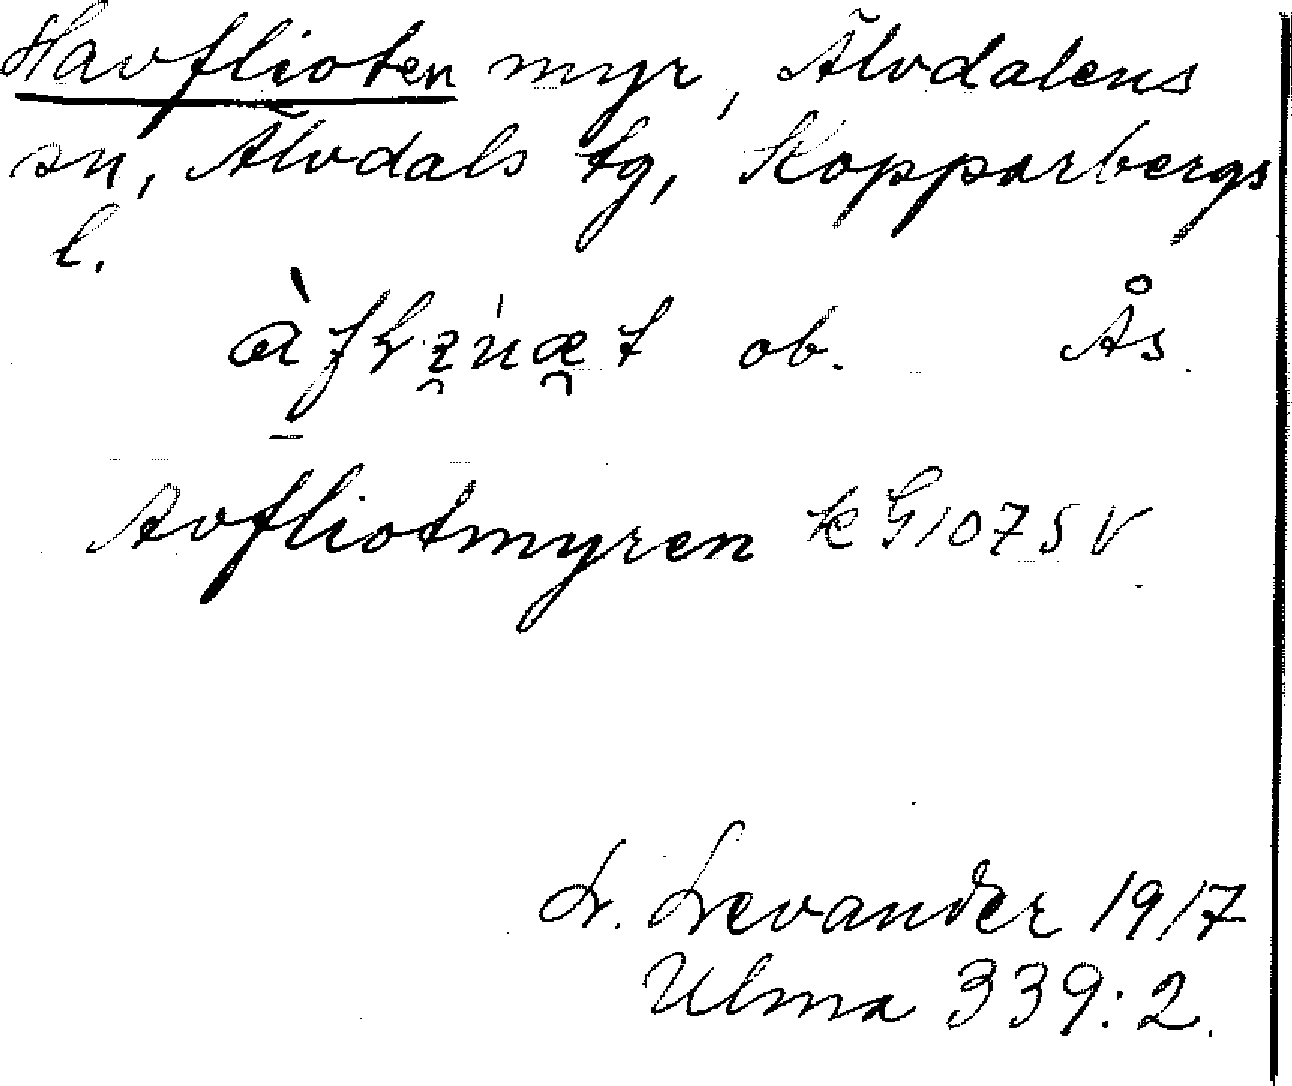 Havflioten myr, Älvdalens
sn, Älvdals tg, Kopparbergs
l.
ob. Ås
Avfliotmyren k G107SV
L. Levander 1917
Ulma 339:2.